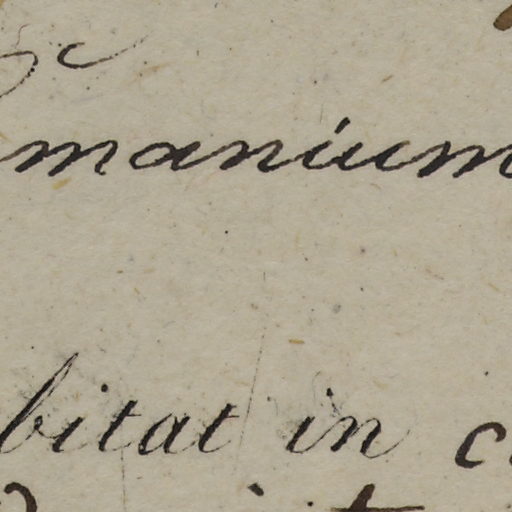 manium
bitat in c